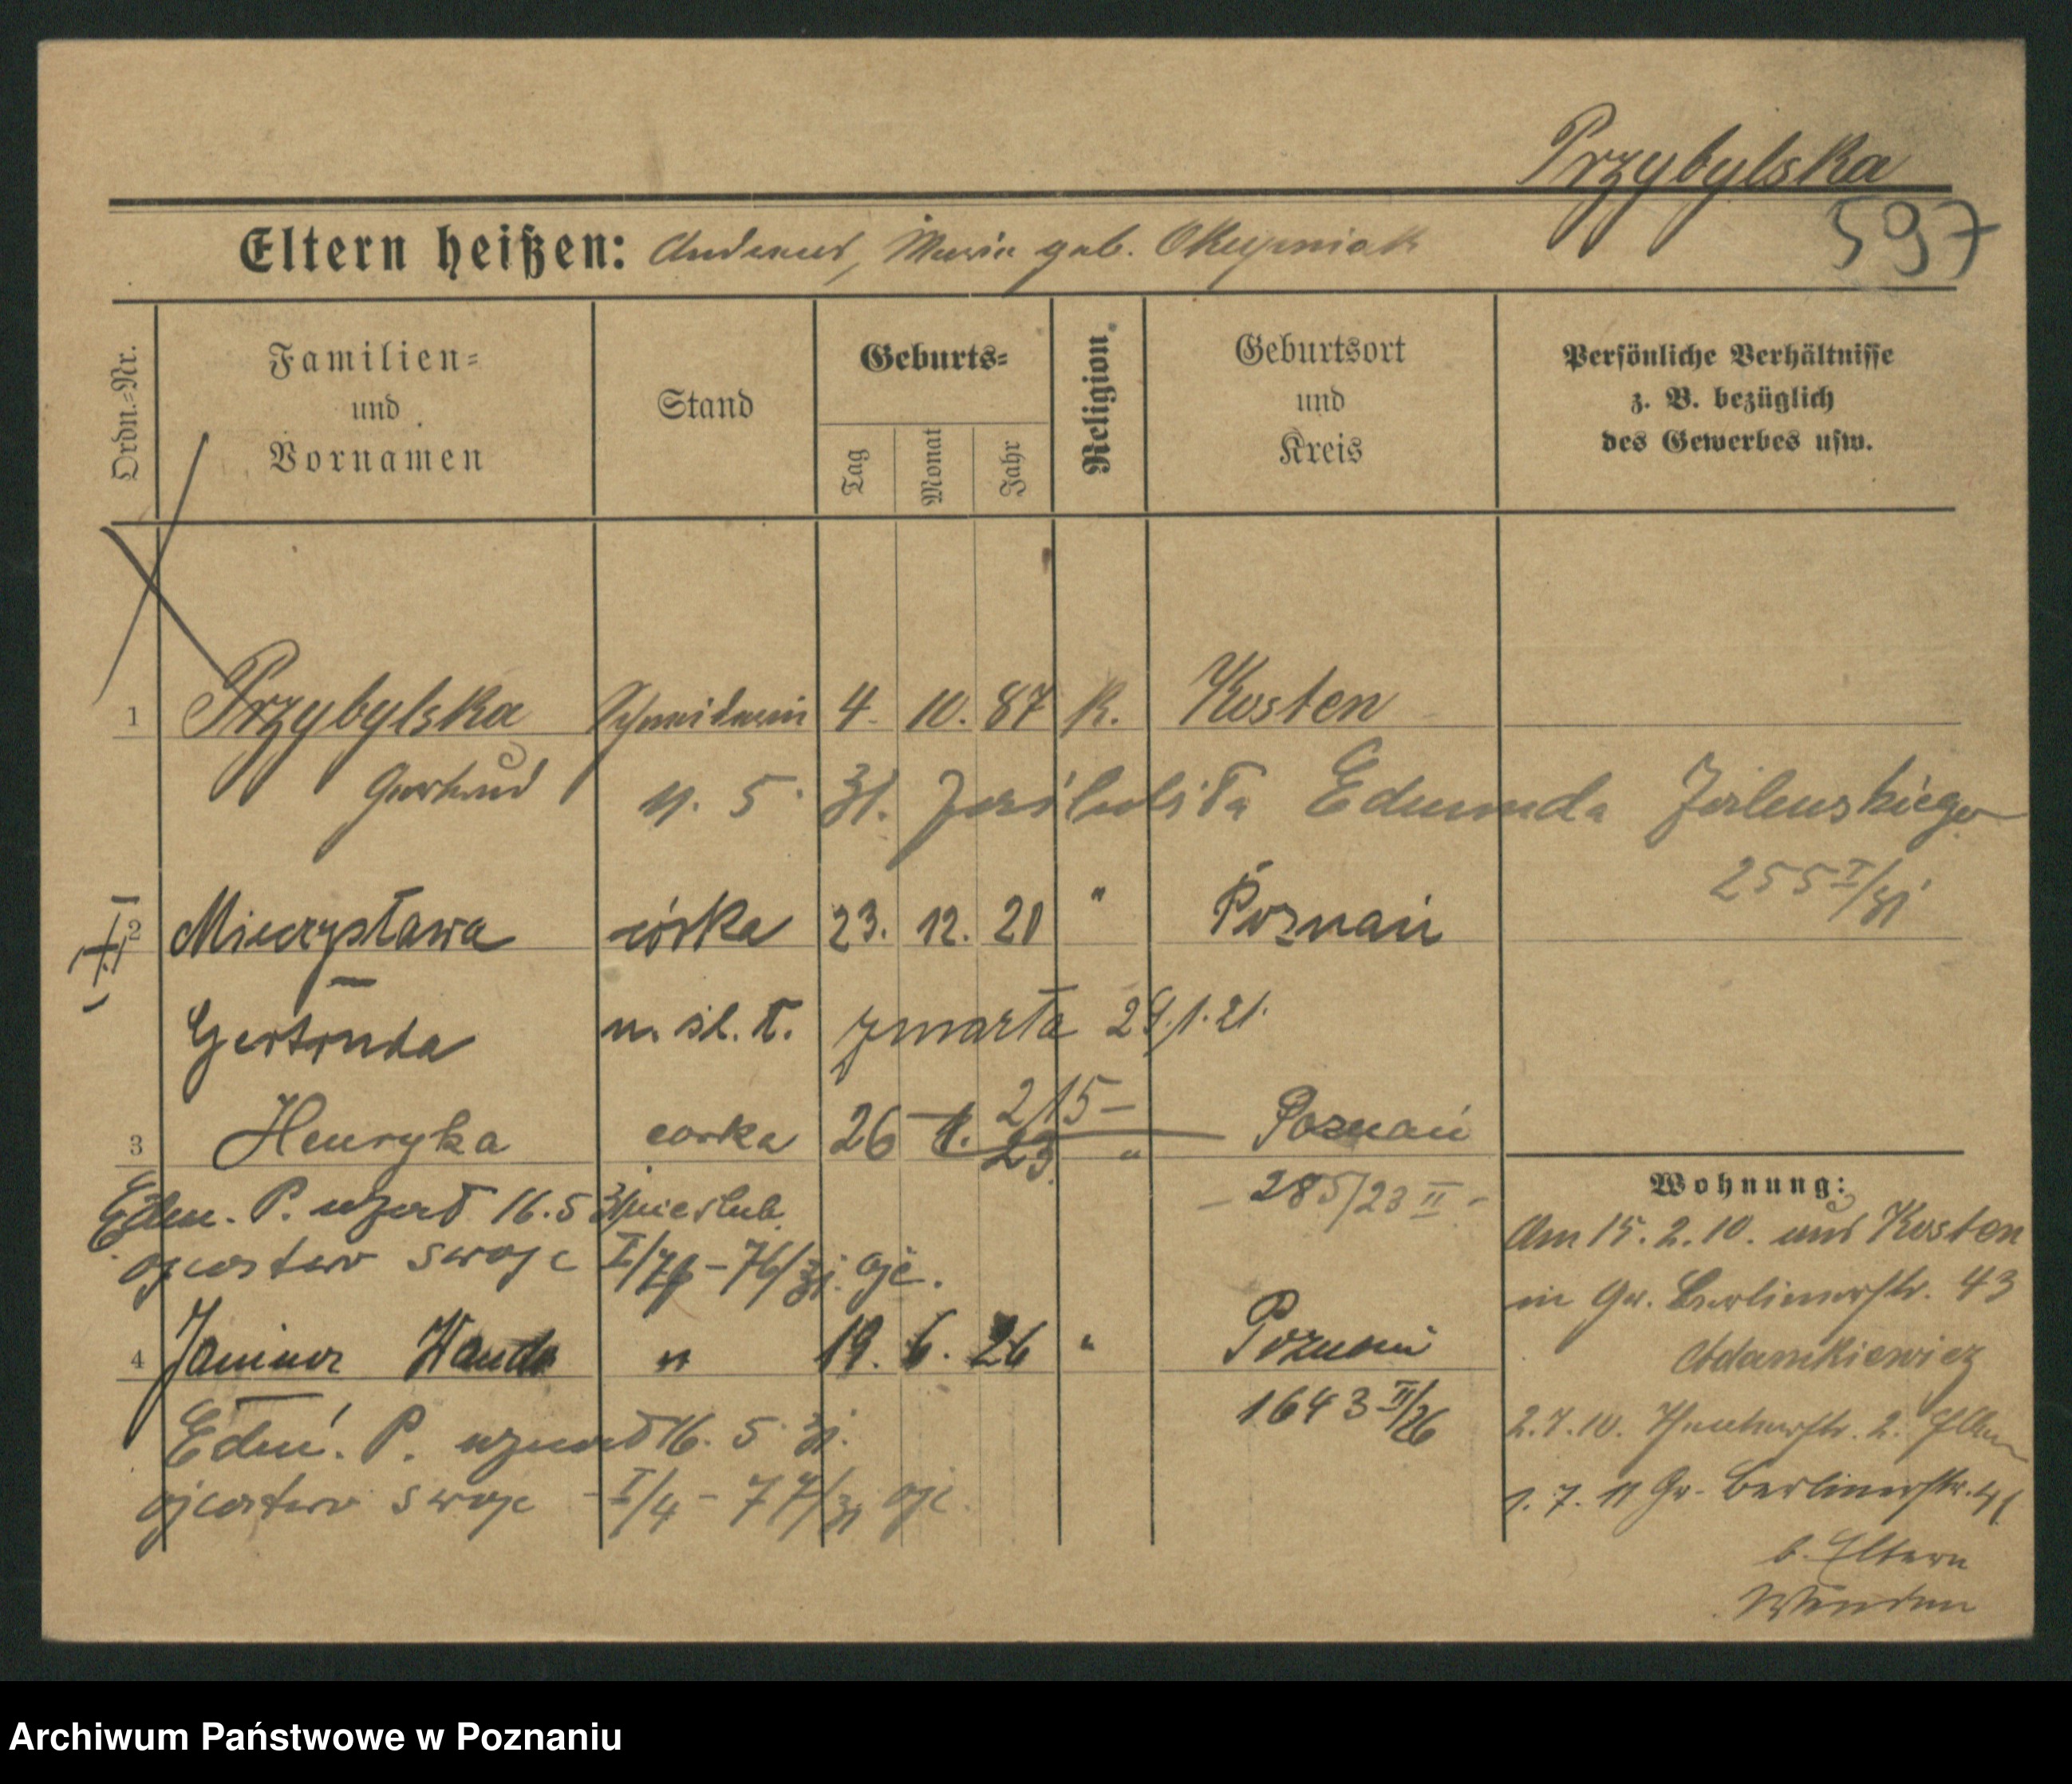 Przybylska
597
Eltern heißen: Andreas, Maria geb.
Ordn.-Nr.
Familien-
und
Vornamen
Stand
Geburts-
Tag
Monat
Jahr
Religion
Geburtsort
und
Kreis
Persönliche Verhältnisse
z. B. bezüglich
des Gewerbes usw.
1 Przybylska Schneiderin 4. 10. 87 k. Kosten
Gertrud n. 5. 31. Edmunda
255 I/31
2 Mieczysława córka 23. 12. 20 " Poznań
Gertruda n. śl. zmarła 29.1.21.
215
3 Henryka corka 26 1. 23 " Poznań
285/23 II
Edm. P. uznał 16.5 31 nieślub.
ojcostwo swoje - 76/31 ojc.
4 Janina Wanda " 19. 6. 26 " Poznań
1643 II/26
Edm. P. uznał 16. 5. 31.
ojcostwo swoje - I/4 - 77/31 ojc.
Wohnung:
Am 15. 2. 10. aus Kosten
in Gr. Berlinerstr. 43
Adamkiewicz
2. 7. 10. 2.
1. 7. 11 Gr. Berlinerstr.
b. Eltern
Archiwum Państwowe w Poznaniu